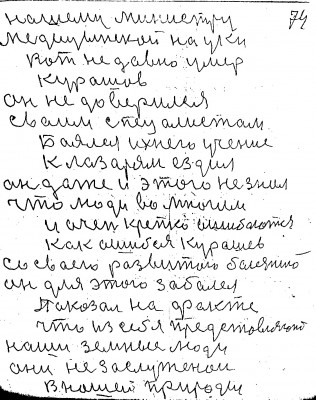 нашему министру 74
медецинской науки
Вот не давно умер
Курашов
он не доверился
своим специалистам
Боялся ихнего учение
К лазарям ездил
он даже и этого не знил
что люди во многим
и очен крепко ошибаются
Как ошибся Курашев
со своего развитого
он для этого забалел
Показал на факте
что из себя представляют
наши земные люди
они не заслуженои
В нашей природи